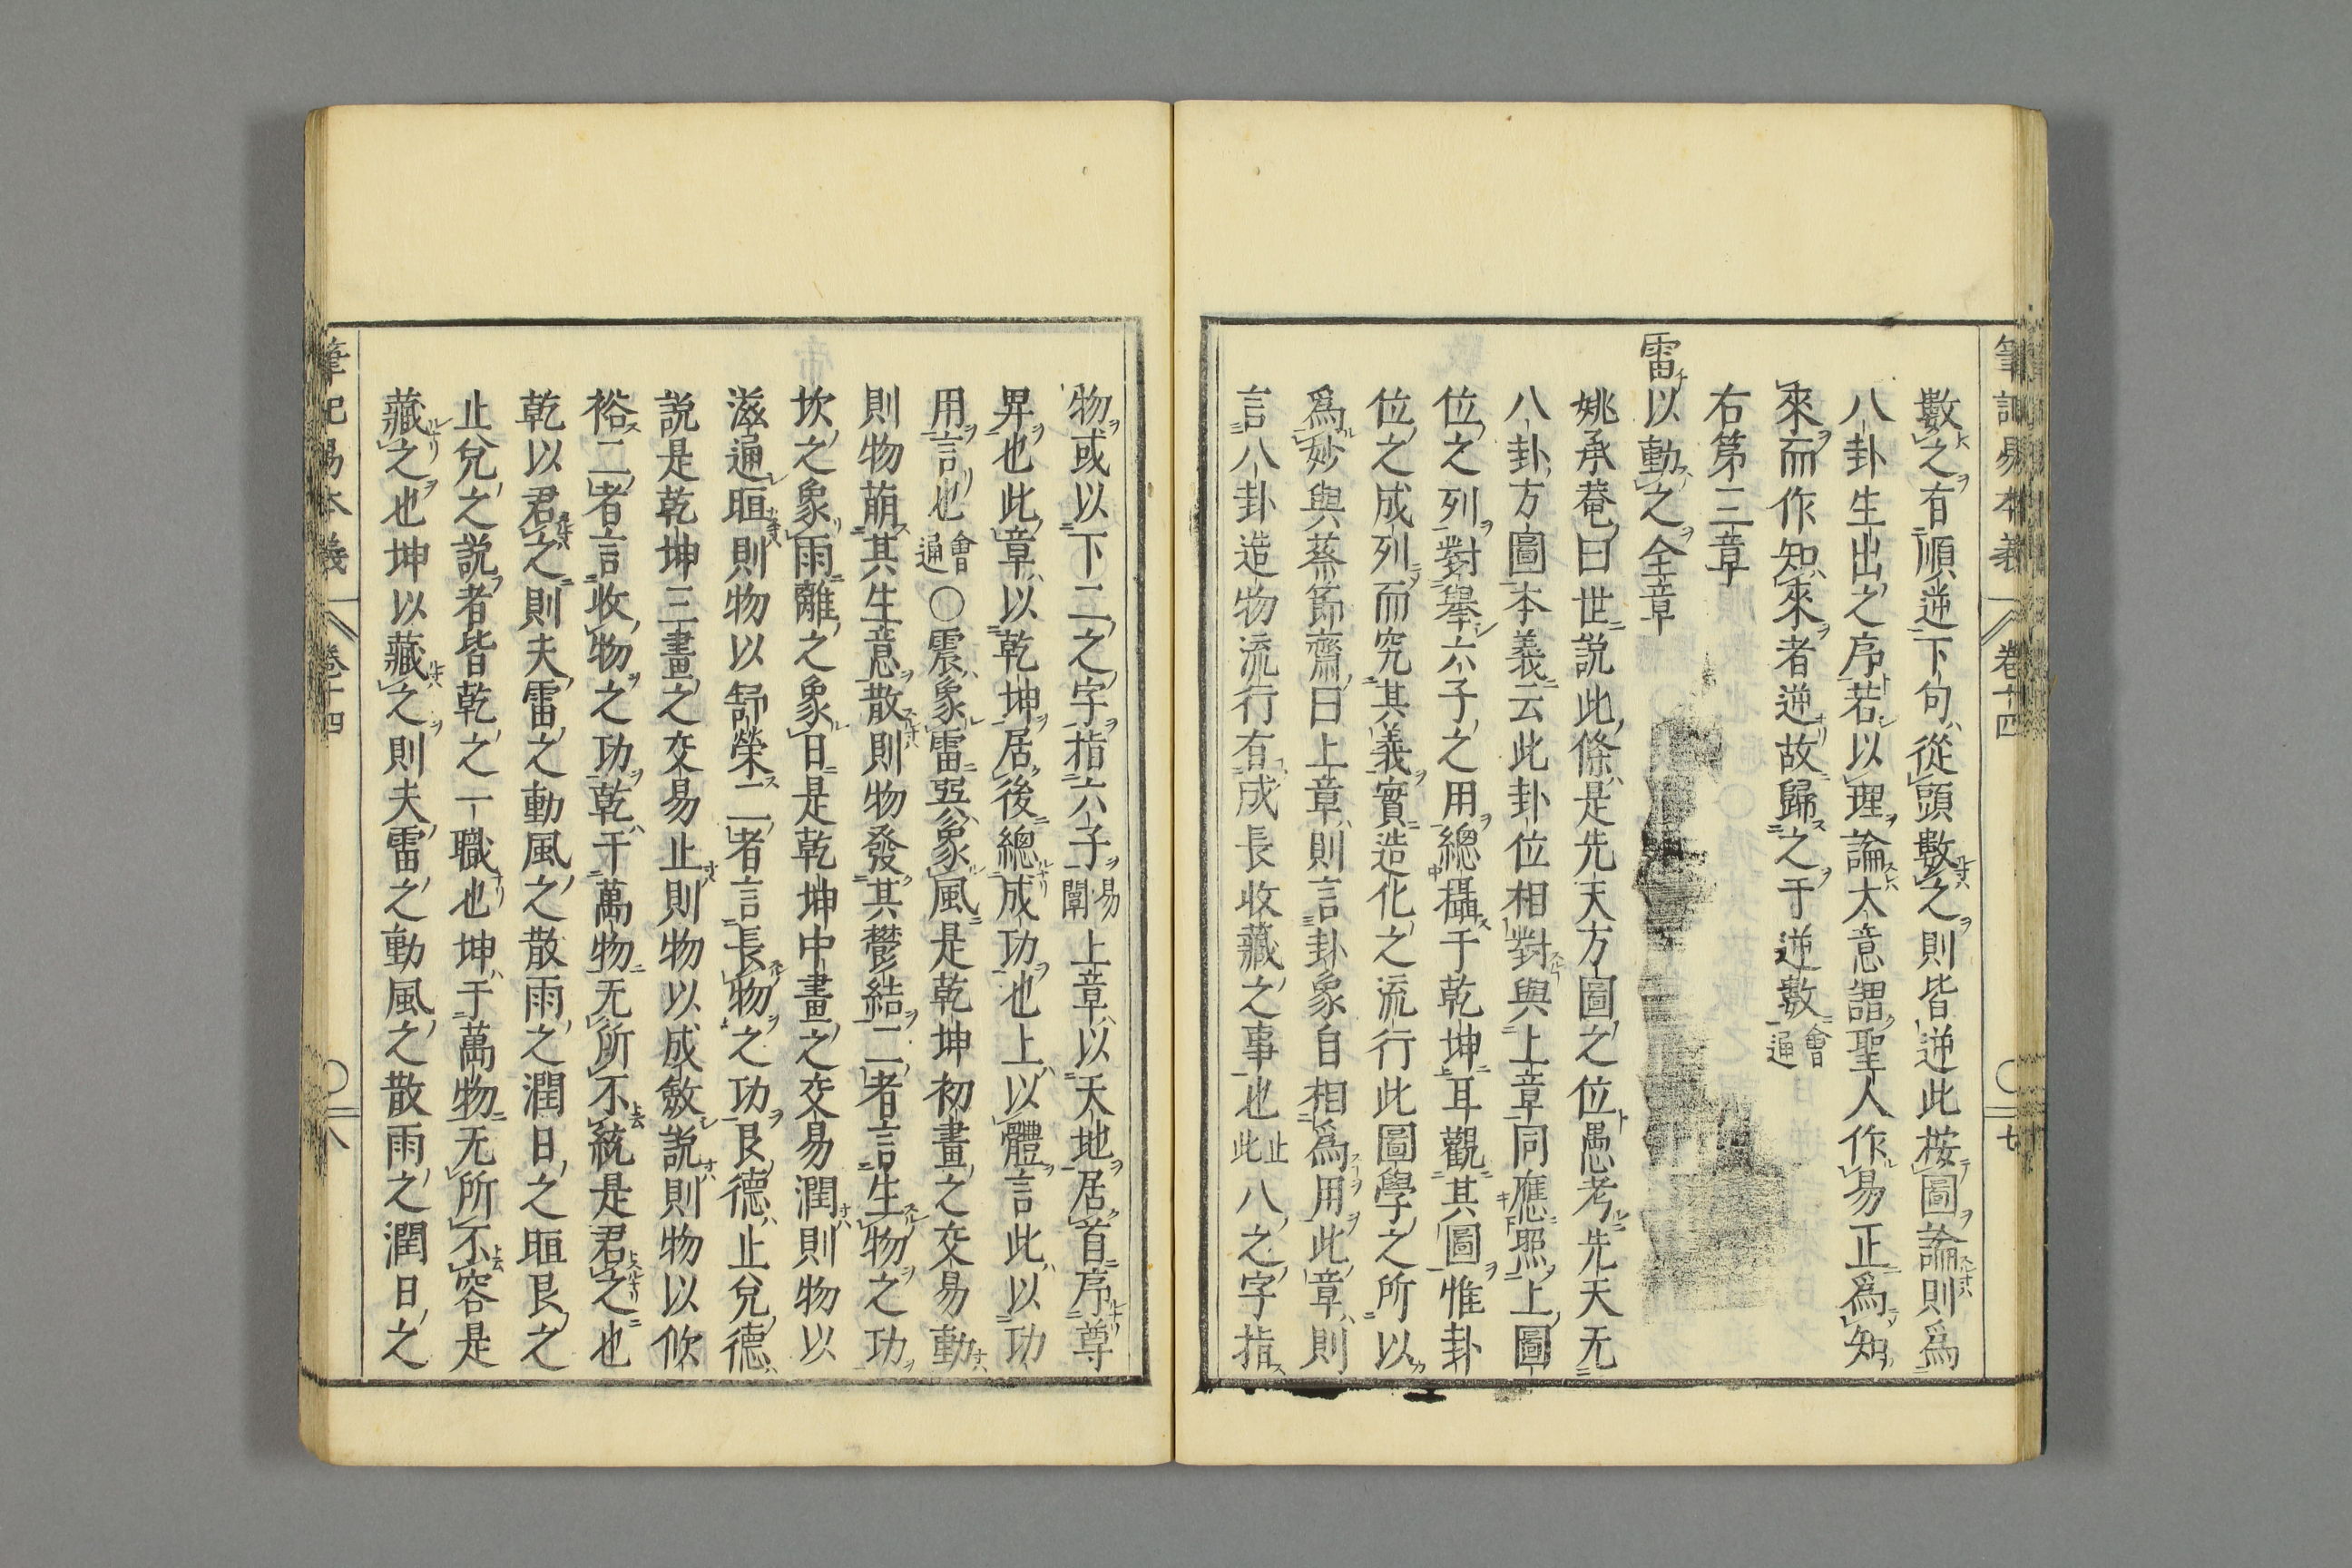 筆記易本義 卷十四 七
數之有順逆下句從頭數之則皆逆此按圖論則爲
八卦生出之序若以理論大意謂聖人作易正爲知
來而作知來者逆故歸之于逆數會通
右第三章
雷以動之全章
姚承菴曰世說此條是先天方圖之位愚考先天无
八卦方圖本義云此卦位相對與上章同應照上圖
位之列對舉六子之用總攝于乾坤耳觀其圖惟卦
位之成列而究其義實造化之流行此圖學之所以
爲妙與蔡節齋曰上章則言卦象自相爲用此章則
言八卦造物流行有成長收藏之事也止此八之字指
物或以下二之字指六子易闡上章以天地居首序尊
昇也此章以乾坤居後總成功也上以體言此以功
用言也會通○震象雷巽象風是乾坤初畫之交易動
則物萠其生意散則物發其鬱結二者言生物之功
坎之象雨離之象日是乾坤中畫之交易潤則物以
滋遍晅則物以舒榮二者言長物之功艮德止兌德
說是乾坤三畫之交易止則物以成斂說則物以攸
裕二者言收物之功乾干萬物无所不統是君之也
乾以君之則夫雷之動風之散雨之潤日之晅艮之
止兌之說者皆乾之一職也坤于萬物无所不容是
藏之也坤以藏之則夫雷之動風之散雨之潤日之
筆記易本義 卷十四 八